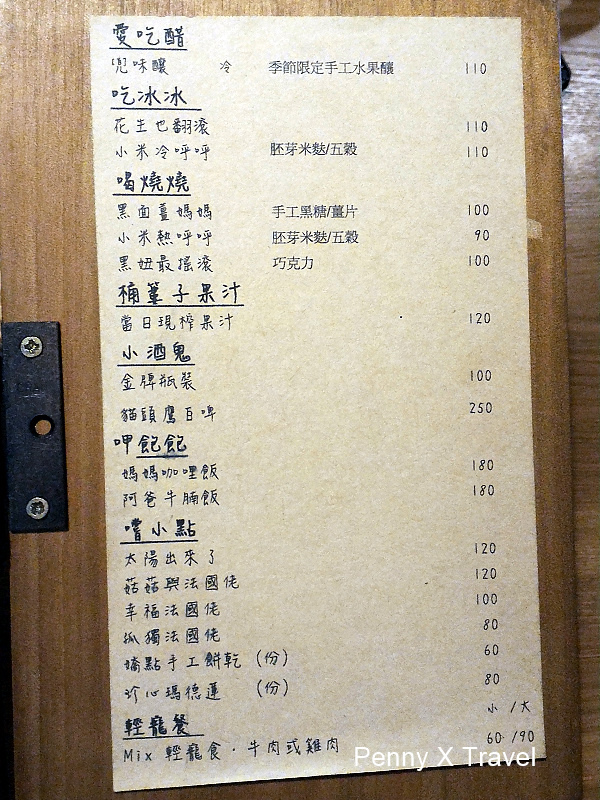 愛吃醋
兜味釀 冷 季節限定手工水果釀 110
吃冰冰
花生也翻滾 110
小米冷呼呼 胚芽米麩/五穀 110
喝燒燒
黑面薑媽媽 手工黑糖/薑片 100
小米熱呼呼 胚芽米麩/五穀 90
黑妞最搖滾 巧克力 100
桶篳子果汁
當日現榨果汁 120
小酒鬼
金牌瓶裝 100
貓頭鷹白啤 250
呷飽飽
媽媽咖哩飯 180
阿爸牛腩飯 180
嚐小點
太陽出來了 120
菇菇與法國佬 120
幸福法國佬 100
孤獨法國佬 80
嬌點手工餅乾 (份) 60
珍心瑪德蓮 (份) 80
輕寵餐 小/大
Mix 輕寵食·牛肉或雞肉 60/90
Penny X Travel